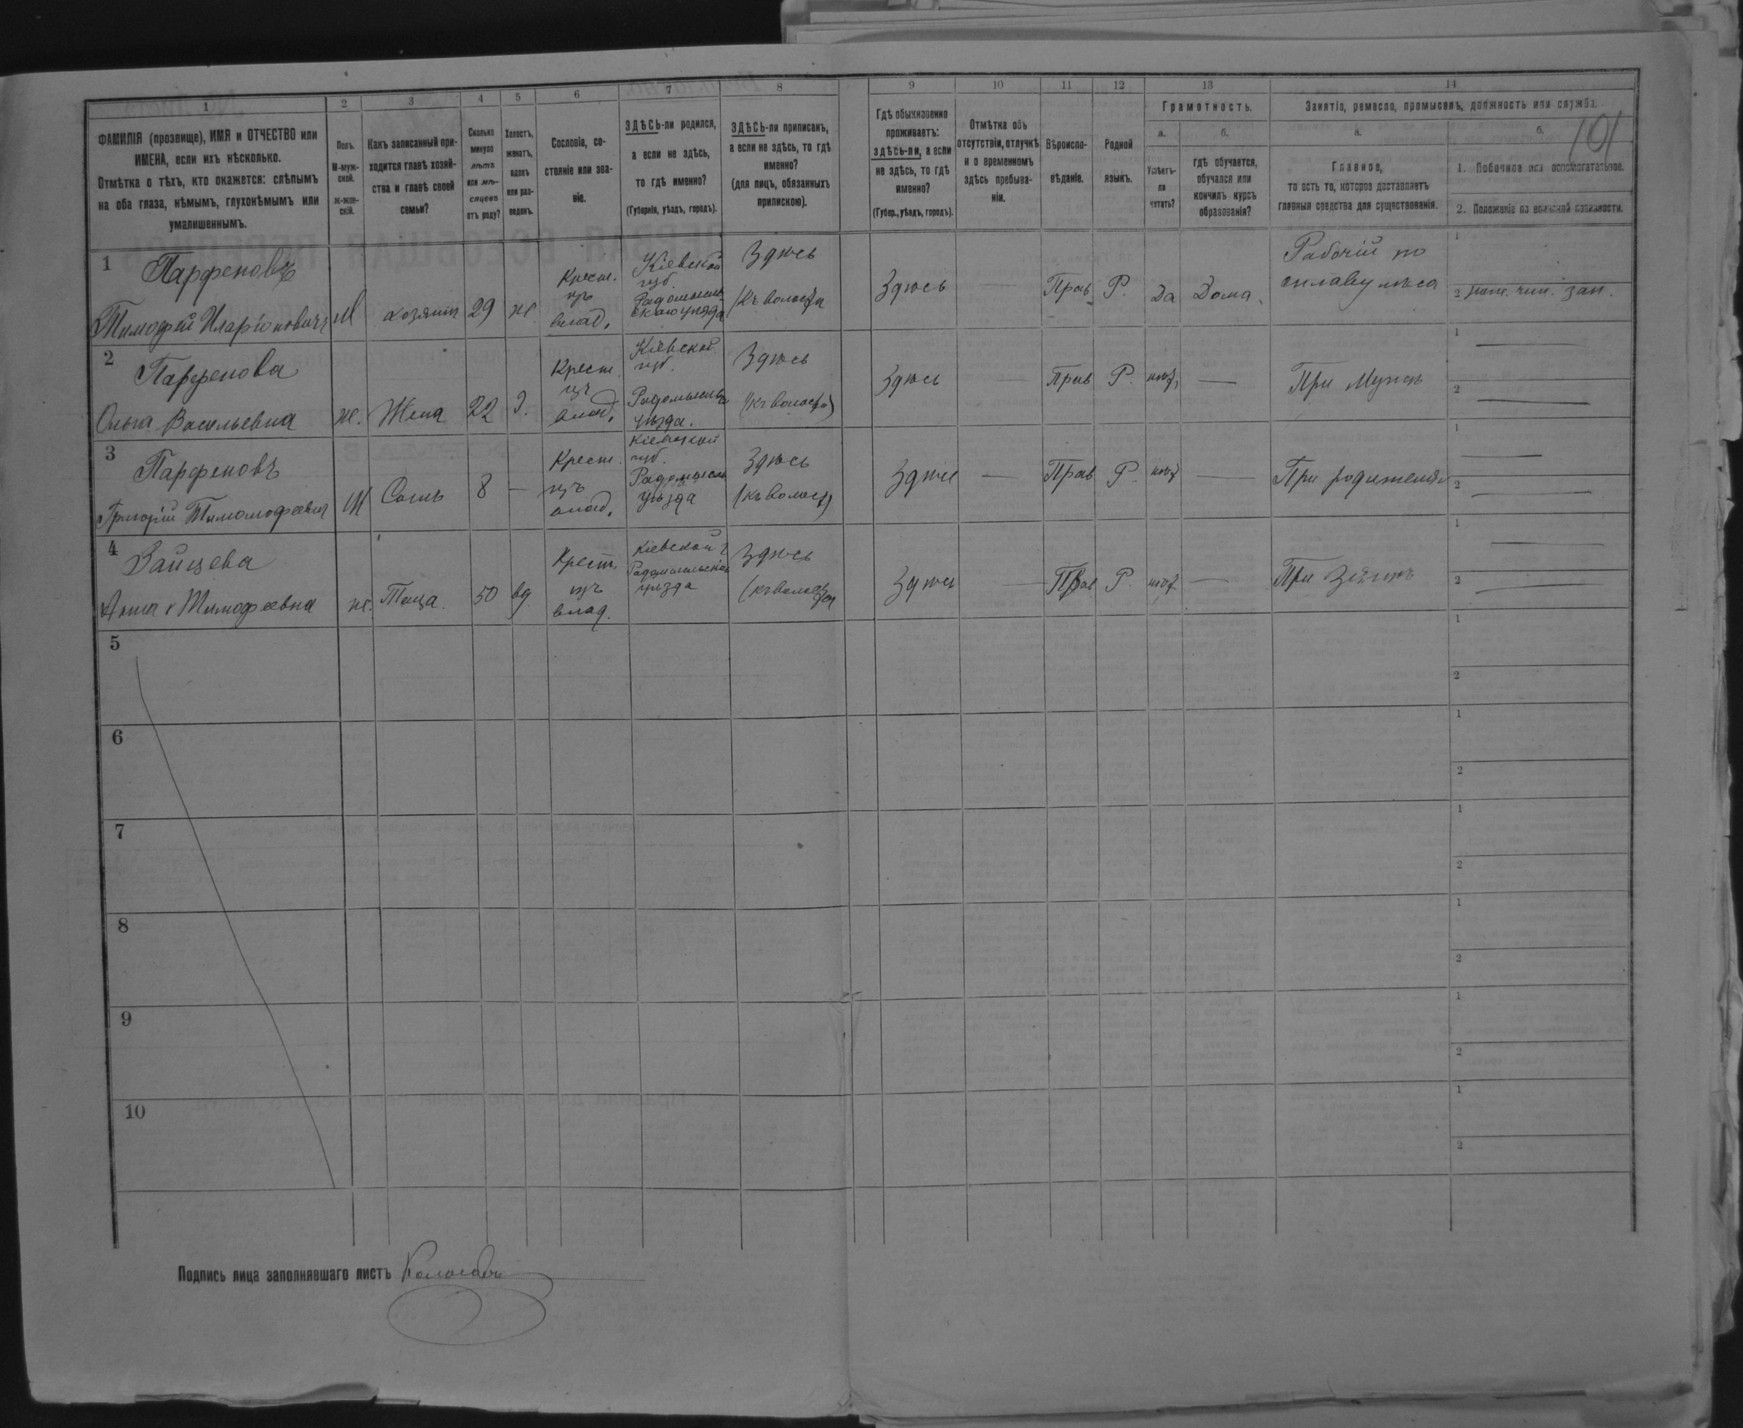 1 2 3 4 5 6 7 8 9 10 11 12 13 14
ФАМИЛІЯ (прозвище), ИМЯ и ОТЧЕСТВО или
ИМЕНА, если ихъ нѣсколько.
Отмѣтка о тѣхъ, кто окажется: слѣпымъ
на оба глаза, нѣмымъ, глухонѣмымъ или
умалишеннымъ.
Полъ.
М-муж-
ской.
ж-жен-
скій.
Какъ записанный при-
ходится главѣ хозяй-
ства и главѣ своей
семьи?
Сколько
минуло
лѣтъ
или мѣ-
сяцевъ
отъ роду?
Холостъ,
женатъ,
вдовъ
или раз-
веденъ.
Сословіе, со-
стояніе или зва-
ніе.
ЗДѢСЬ-ли родился,
а если не здѣсь,
то гдѣ именно?
(Губернія, уѣздъ, городъ).
ЗДѢСЬ-ли приписанъ,
а если не здѣсь, то гдѣ
именно?
(для лицъ, обязанныхъ
припискою).
Гдѣ обыкновенно
проживаетъ:
здѣсь-ли, а если
не здѣсь, то гдѣ
именно?
(Губер., уѣздъ, городъ).
Отмѣтка объ
отсутствіи, отлучкѣ
и о временномъ
здѣсь пребыва-
ніи.
Вѣроиспо-
вѣданіе.
Родной
языкъ.
Грамотность.
а.
Умѣетъ-
ли
читать?
б.
гдѣ обучается,
обучался или
кончилъ курсъ
образованія?
Занятіе, ремесло, промыселъ, должность или служба.
101
а.
Главное,
то есть то, которое доставляетъ
главныя средства для существованія.
б.
1. Побочное или вспомогательное.
2. Положеніе по воинской повинности.
1 Парфеновъ
Тимофей Иларіоновичъ
М
хозяинъ
29
ж
Крест.
изъ
влад.
Кіевской
губ.
Радомысль-
скаго уѣзда
Здѣсь
Здѣсь
—
Прав
Р.
Да
Дома.
Рабочій по
сплаву лѣса
1
2
2 Парфенова
Ольга Васильевна
ж.
Жена
22
З.
Крест.
изъ
влад.
Кіевской
губ.
уѣзда.
Здѣсь
Здѣсь
—
Прав
Р.
нѣтъ
—
При мужѣ
1 —
2 —
3 Парфеновъ
Григорій
М
Сынъ
8
—
Крест.
изъ
влад.
Кіевской
губ.
уѣзда
Здѣсь
Здѣсь
—
Прав
Р.
нѣтъ
—
При родителяхъ
1 —
2 —
4 Зайцева
Анна Тимофеевна
ж.
Теща.
50
вд.
Крест.
изъ
влад.
Кіевской г
уѣзда
Здѣсь
Здѣсь
—
Прав
Р.
нѣтъ
—
При зятѣ
1 —
2 —
5
1
2
6
1
2
7
1
2
8
1
2
9
1
2
10
1
2
Подпись лица заполнявшаго листъ